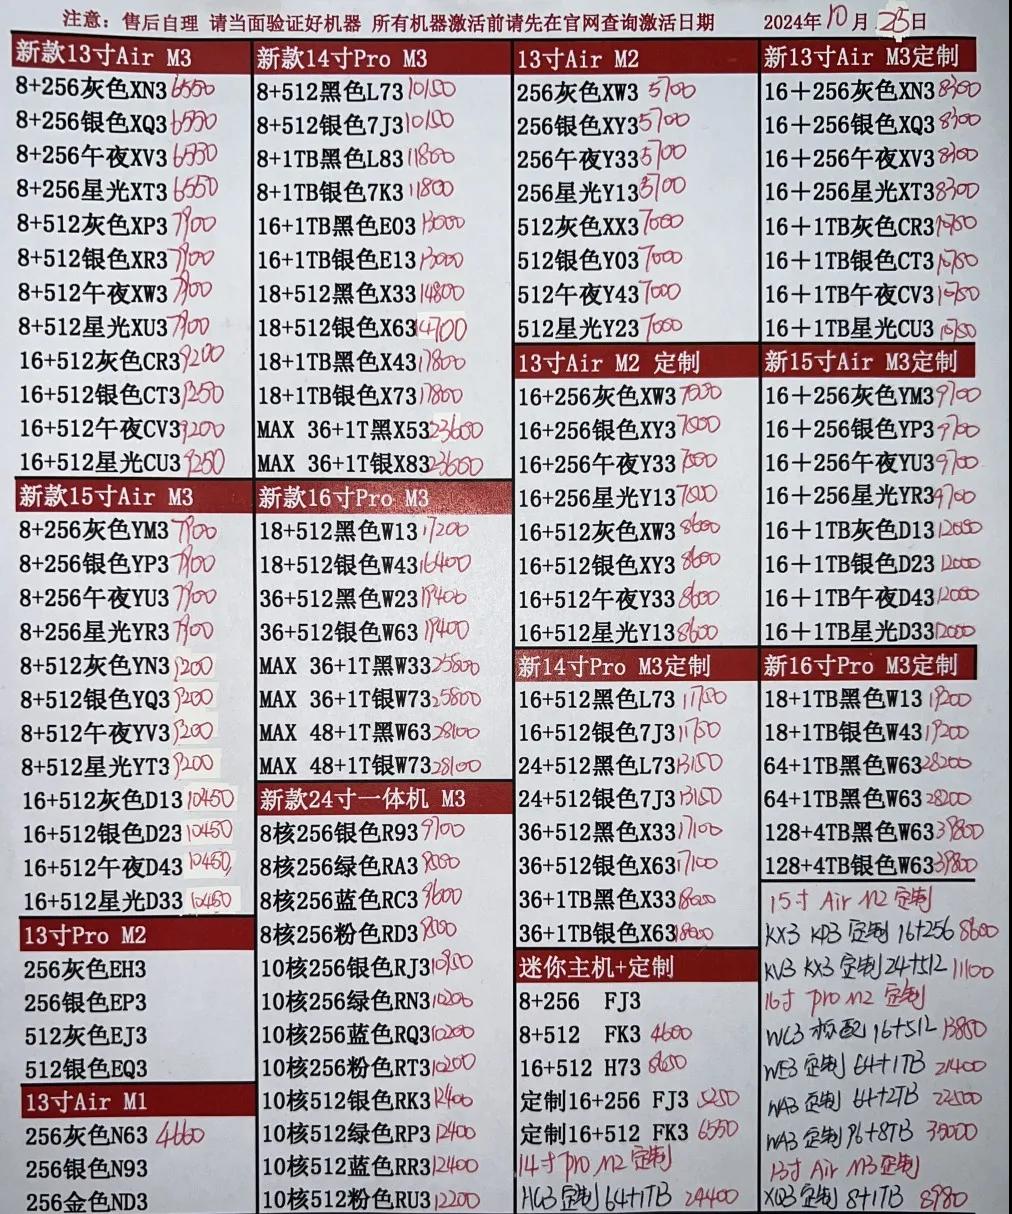 注意：售后自理 请当面验证好机器 所有机器激活前请先在官网查询激活日期 2024年10月25日
新款13寸Air M3
8+256灰色XN3 6550
8+256银色XQ3 6550
8+256午夜XV3 6550
8+256星光XT3 6550
8+512灰色XP3 7900
8+512银色XR3 7900
8+512午夜XW3 7900
8+512星光XU3 7900
16+512灰色CR3 9200
16+512银色CT3 9250
16+512午夜CV3 9200
16+512星光CU3 9250
新款15寸Air M3
8+256灰色YM3 7900
8+256银色YP3 7900
8+256午夜YU3 7900
8+256星光YR3 7900
8+512灰色YN3 9200
8+512银色YQ3 9200
8+512午夜YV3 9200
8+512星光YT3 9200
16+512灰色D13 10450
16+512银色D23 10450
16+512午夜D43 10450
16+512星光D33 10450
13寸Pro M2
256灰色EH3
256银色EP3
512灰色EJ3
512银色EQ3
13寸Air M1
256灰色N63 4660
256银色N93
256金色ND3
新款14寸Pro M3
8+512黑色L73 10150
8+512银色7J3 10150
8+1TB黑色L83 11800
8+1TB银色7K3 11800
16+1TB黑色E03 13000
16+1TB银色E13 13000
18+512黑色X33 14800
18+512银色X63 14700
18+1TB黑色X43 17800
18+1TB银色X73 17800
MAX 36+1T黑X53 23600
MAX 36+1T银X83 23600
新款16寸Pro M3
18+512黑色W13 17200
18+512银色W43 16400
36+512黑色W23 19400
36+512银色W63 19400
MAX 36+1T黑W33 25800
MAX 36+1T银W73 25800
MAX 48+1T黑W63 28100
MAX 48+1T银W73 28100
新款24寸一体机 M3
8核256银色R93 9700
8核256绿色RA3
8核256蓝色RC3
8核256粉色RD3
10核256银色RJ3
10核256绿色RN3 10200
10核256蓝色RQ3 10200
10核256粉色RT3 10200
10核512银色RK3 12400
10核512绿色RP3 12400
10核512蓝色RR3 12400
10核512粉色RU3 12200
13寸Air M2
256灰色XW3 5700
256银色XY3 5700
256午夜Y33 5700
256星光Y13 5700
512灰色XX3 7000
512银色Y03 7000
512午夜Y43 7000
512星光Y23 7000
13寸Air M2 定制
16+256灰色XW3 7000
16+256银色XY3 7000
16+256午夜Y33 7000
16+256星光Y13 7000
16+512灰色XW3 8600
16+512银色XY3 8600
16+512午夜Y33 8600
16+512星光Y13 8600
新14寸Pro M3定制
16+512黑色L73 11750
16+512银色7J3 11750
24+512黑色L73 13150
24+512银色7J3 13150
36+512黑色X33 17100
36+512银色X63 17100
36+1TB黑色X33
36+1TB银色X63 18000
迷你主机+定制
8+256 FJ3
8+512 FK3 4600
16+512 H73 8650
定制16+256 FJ3 5250
定制16+512 FK3 6550
14寸 pro M2 定制
HG3 定制 64+1TB 24400
新13寸Air M3定制
16＋256灰色XN3 8300
16＋256银色XQ3 8300
16＋256午夜XV3 8300
16＋256星光XT3 8300
16＋1TB灰色CR3 10750
16＋1TB银色CT3 10750
16＋1TB午夜CV3 10750
16＋1TB星光CU3 10750
新15寸Air M3定制
16＋256灰色YM3 9700
16＋256银色YP3 9700
16＋256午夜YU3 9700
16＋256星光YR3 9700
16＋1TB灰色D13 12000
16＋1TB银色D23 12000
16＋1TB午夜D43 12000
16＋1TB星光D33 12000
新16寸Pro M3定制
18+1TB黑色W13 19200
18+1TB银色W43 19200
64+1TB黑色W63 28200
64+1TB黑色W63 28200
128+4TB黑色W63 39800
128+4TB银色W63 39800
15寸 Air M2 定制
KX3 KP3 定制 16+256 8600
KV3 KX3 定制 24+512 11100
16寸 pro M2 定制
WC3 标配 16+512 13850
WE3 定制 64+1TB 21400
WA3 定制 64+2TB 22500
WA3 定制 96+8TB 35000
13寸 Air M3 定制
XQ3 定制 8+1TB 8980